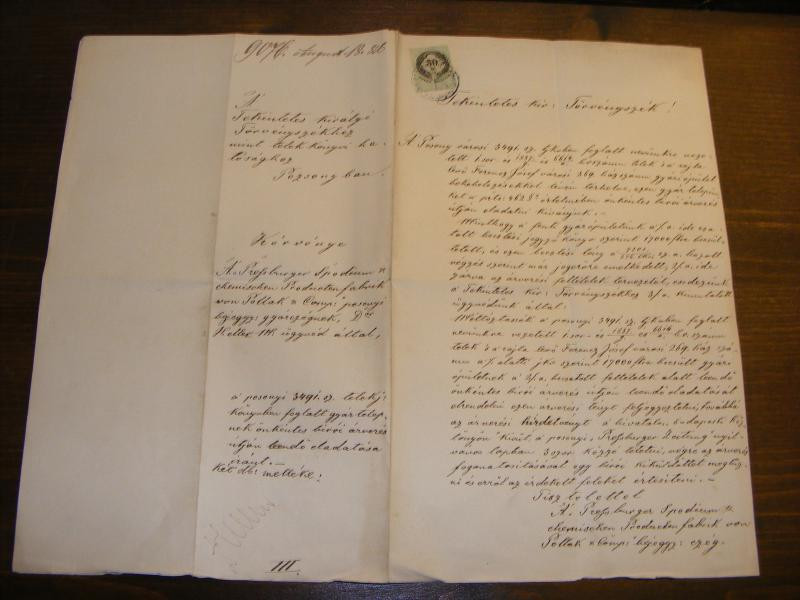 9076. August 18. 886
A
Tekintetes királyi
Törvényszékhez
mint telekkönyvi ha-
tósághoz
Pozsonyban
Kérvénye
A "Pressburger Spodium u
chemischen Producten fabrik
von Pollak & Comp." posonyi
bejegyz. gyárczégnek, Dr
Keller M. ügyvéd által,
a posonyi 3491. sz. telekj.
könyvben foglalt gyártelep-
nek önkéntes birói árverés
útján leendő eladatása
iránt. –
Két db. melléke:
III
50
Tekintetes kir. Törvényszék!
A Posony városi 3491. sz. tjkvben foglalt nevünkre veze-
tett I. sor. és helyszámu telek s a rajta
levő Ferencz József városi 269. házszámu gyári épület
bekebelezésekkel leven terhelve, ezen gyár telepün-
ket a prts: 462 §. értelmében önkéntes birói árverés
útján eladatni kivánjuk. –
Minthogy a fenti gyárépületünk a /. ide csa-
tolt becslési jegyző könyv szerint 17000 ftra becsül-
tetett, és ezen becslési lap a sz. a. hozott
végzés szerint már jogerőre emelkedett, ide
zárva az árverési feltételek tervezetét, esedezünk
a Tekintetes Kir. Törvényszékhez 3/. a. kimutatott
ügyvédünk által:
Méltóztassék a posonyi 3491. sz. tjkvben foglalt
nevünkre vezetett I. sor. és h. szám
telek s a rajta levő Ferencz József városi 269. ház szá-
mu a /. alatti jkv szerint 17000 ftra becsült gyári
épületnek a alatt leendő
önkéntes birói árverés útján leendő eladatását
elrendelni ezen árverési tényt feljegyeztetni, továbbá
az árverési hirdetvényt a hivatalos budapesti Köz-
lönyön kivül a posonyi "Pressburger Zeitung" nyil-
vános lapban 3szor közzé tétetni, végre az árverés
foganatositásával egy birói kiküldöttet megbiz-
ni és erről az érdekelt feleket értesiteni. –
Tisztelettel
A "Pressburger Spodium u
chemischen Producten fabrik von
Pollak & Comp." bejegyz. czég.